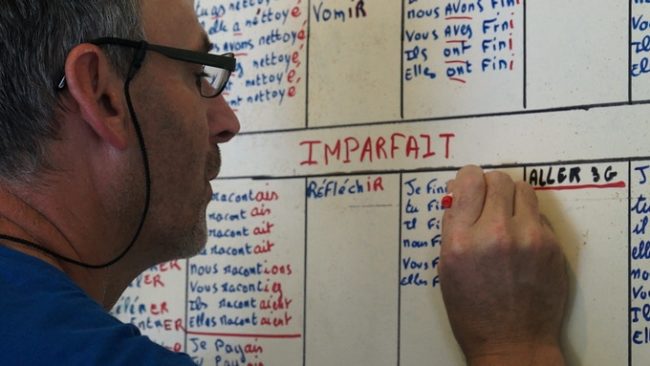 tu as nettoyé
elle a nettoyé
avons nettoyé
nettoyé
nettoyé
ont nettoyé
VomiR
nous avons Fini
Vous aves Fini
Ils ont Fini
Elles ont Fini
IMPARFAIT
racontais
racontais
racontait
racontait
nous racontions
Vous racontiez
Ils racontaient
Elles racontaient
Je Payais
Payais
RéFLéchiR
Je Fini
tu Fin
il F
nous F
Vous F
elles F
ALLER 3G
J
tu
il
ell
no
Vo
Il
El